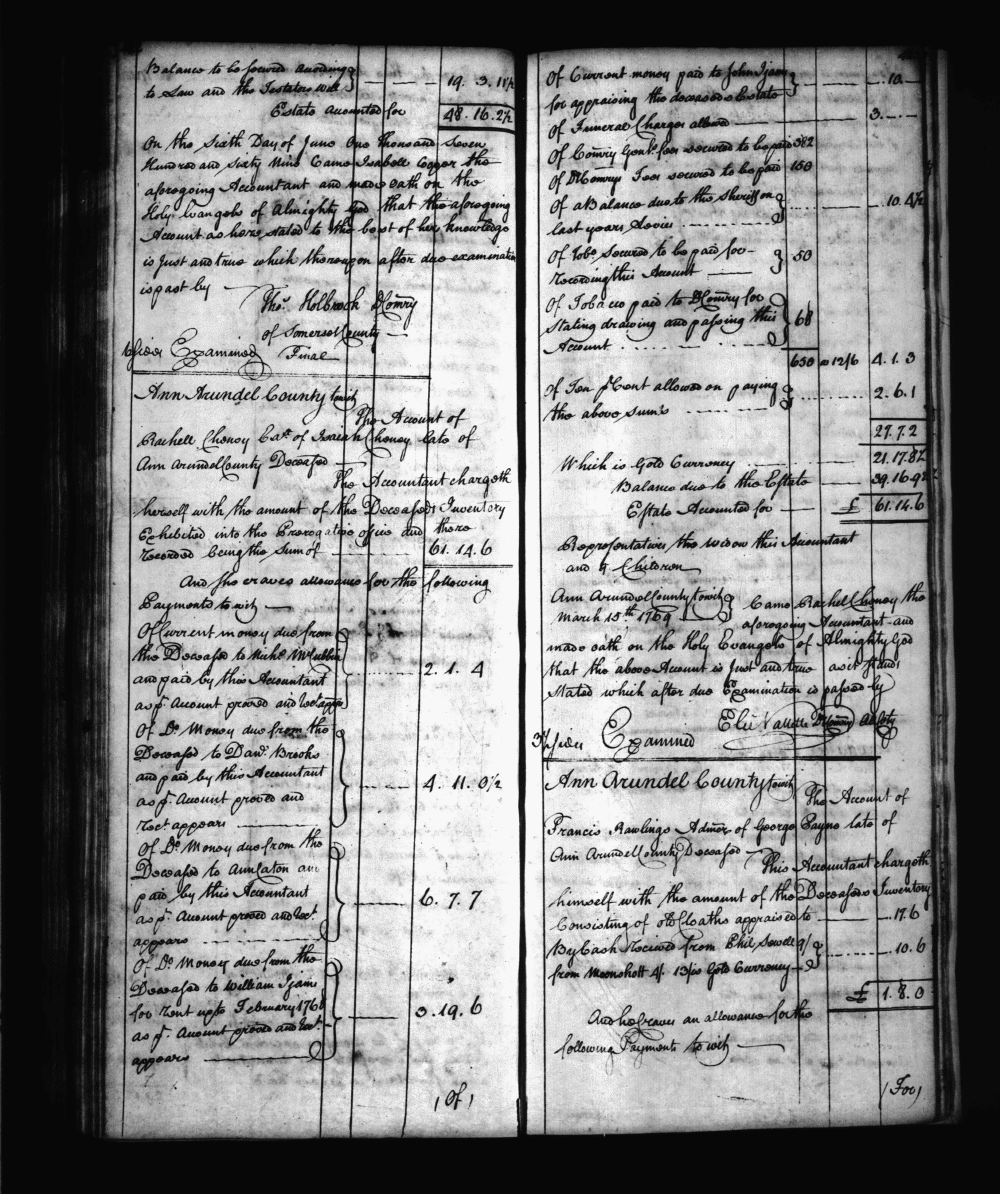 Balance to be secured according
to Law and the Testators will } 19. 3. 11½
Estate accounted for 48. 16. 2½
On the Sixth Day of June One Thousand Seven
Hundred and Sixty Nine Came Isabell Cooper the
aforegoing Accountant and made oath on the
Holy Evangels of Almighty God that the aforegoing
Account as here stated to the best of her knowledge
is Just and true which thereupon after due examination
is past by —
Thos. Holbrook DComry
of Somerset County —
Examined Final
Ann Arundel County towit
The Account of
Rachell Cheney Exx. of Isaiah Cheney late of
Ann Arundel County Deceased —
The Accountant chargeth
herself with the amount of the Deceaseds Inventory
Exhibited into the Prerogative office and there
Recorded being the Sum of 61. 14. 6
And she craves allowance for the following
Payments to wit —
Of Current money due from
the Deceased to Nichs. McCubbin
and paid by this Accountant 2. 1. 4
as pr. Account proved and rect. appr.
Of Do. Money due from the
Deceased to Danl. Brooks
and paid by this Accountant 4. 11. 0½
as pr. Account proved and
Rect. appears
Of Do. Money due from the
Deceased to Ann and
paid by this Accountant 6. 7. 7
as pr. Account proved and rect.
appears
Of Do. Money due from the
Deceased to William Ijams
for Rent upto February 1768 3. 19. 6
as pr. Account proved and rect.
appears
(Of)
Of Current money paid to John Ijams
for appraising the deceaseds Estate } 10.
Of Funeral Charges allowed 3.
Of Comry Genls. fees secured to be paid 382
Of DComrys Fees secured to be paid 150
Of a Balance due to the Sheriff on
last years Levies 10. 4½
Of Tobo. secured to be paid for
Recording this Account } 50
Of Tobacco paid to DComry for
stating drawing and passing this } 68
Account
650 @ 12/6 4. 1. 3
Of Ten pr. Cent allowed on paying
the above sums 2. 6. 1
27. 7. 2
Which is Gold Currency 21. 17. 8½
Balance due to the Estate 39. 16. 9½
Estate Accounted for £ 61. 14. 6
Representatives the widow this Accountant
and 9 Children
Ann Arundel County towit
March 15th 1769 } Came Rachel Cheney the
aforegoing Accountant and
made oath on the Holy Evangels of Almighty God
that the above Account is Just and true as it stands
stated which after due Examination is passed by
Elie Vallette DComry AA Coty
Examined
Ann Arundel County towit
The Account of
Francis Rawlings Admor. of George Payne late of
Ann Arundel County Deceased —
This Accountant chargeth
himself with the amount of the Deceaseds Inventory
Consisting of old Cloaths appraised to 17. 6
By Cash Received from Phil. Sewell 9/
from Moonshott 4/. 13/ is Gold Currency 10. 6
£ 1. 8. 0
And he craves an allowance for the
following Payments to wit —
(For)